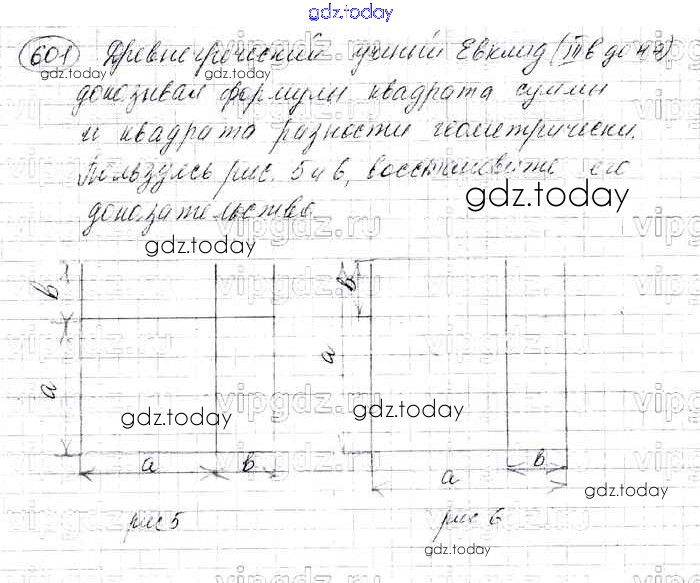 gdz.today
601 Древнегреческий учёный Евклид (III в до н э)
доказывал формулы квадрата суммы
и квадрата разности геометрически.
Пользуясь рис. 5 и 6, восстановите его
доказательство.
gdz.today
gdz.today
gdz.today
gdz.today
vipgdz.ru
в
а
а
в
рис 5
в
а
в
а
рис 6
gdz.today
gdz.today
gdz.today
gdz.today